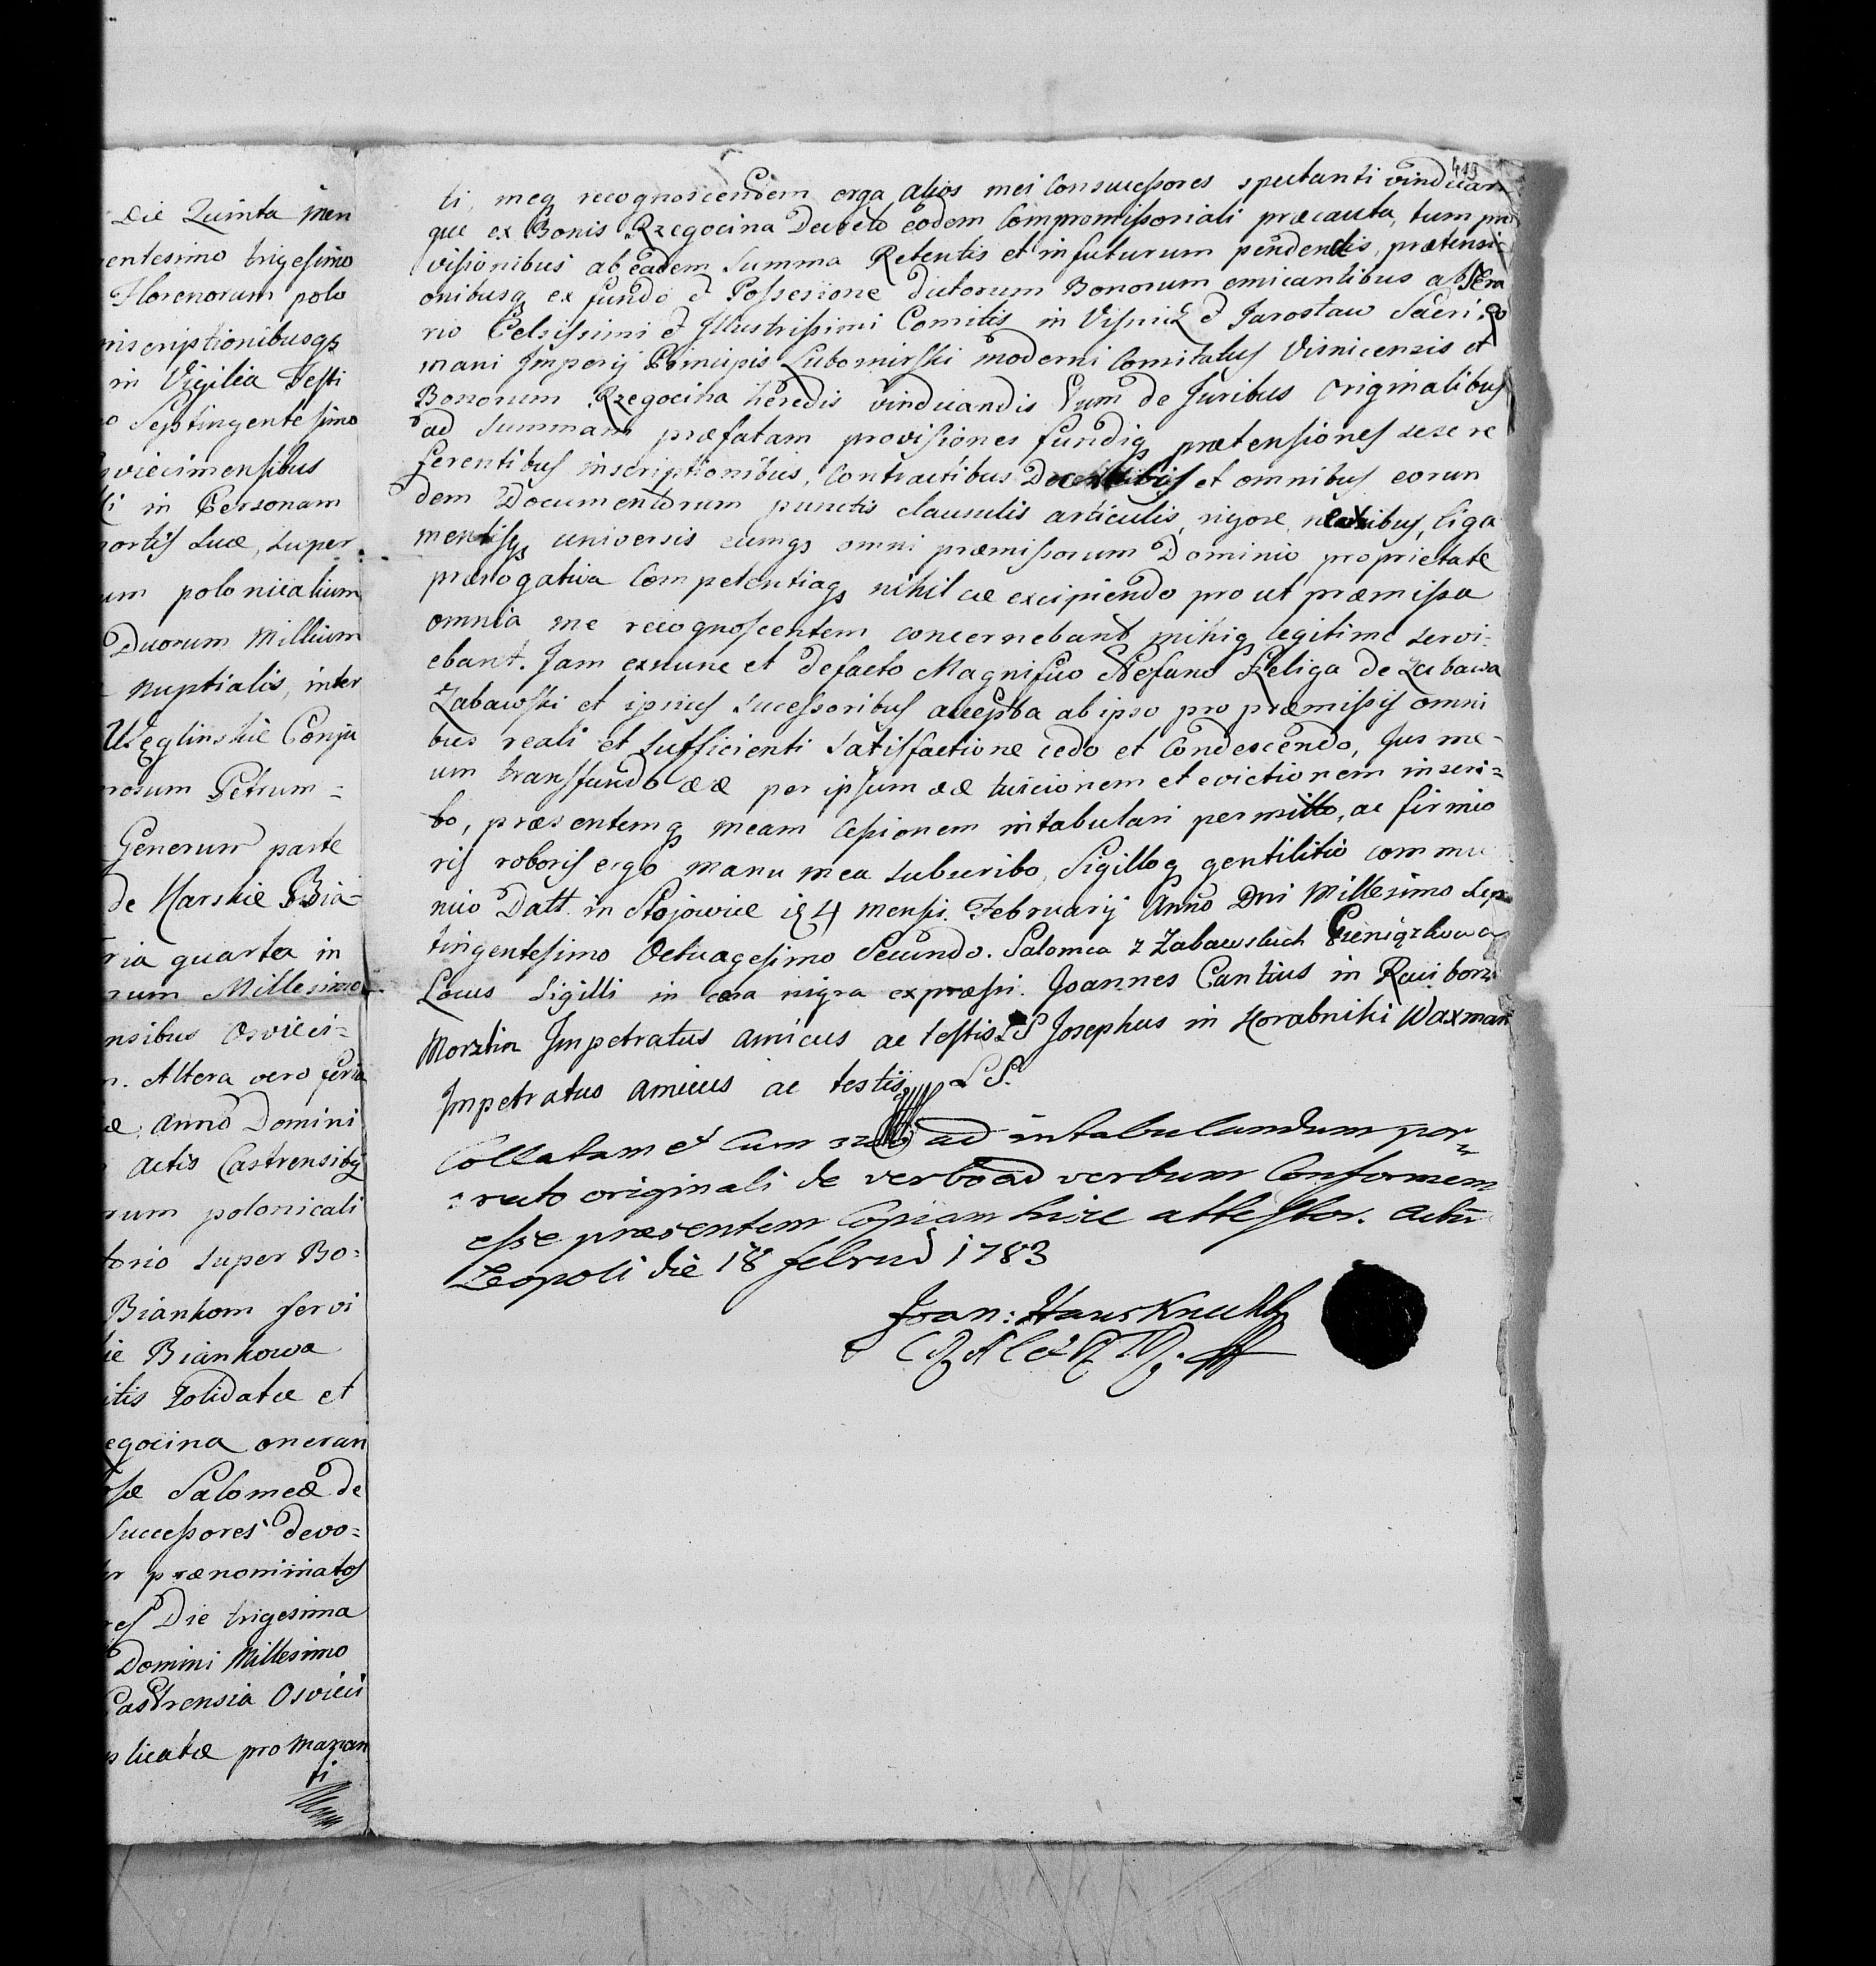 Die Quinta men
entesimo trigesimo
Florenorum polo
inscriptionibusqꝫ
in Vigilia Festi
o Septingentesimo
viecimensibus
li in Personam
mortis suæ, super
um polonicalium
Duorum Millium
Nuptialis, inter
Węglinskie Conju
rosum Petrum =
Generum parte
de Karskie Bia-
ria quarta in
rum Millesimo
nsibus Osvieci=
n. Altera vero feria
æ anno Domini
Actis Castrensibꝫ
rum polonicali
torio super Bo=
Biankom servi
ie Biankowa
itis solidatæ et
egocina oneran
osæ Salomeæ de
Successores devo=
r prænominatos
res Die trigesima
Domini Millesimo
Castrensia Osvieci
plicatæ pro manan
ti
419
ti, meq recognoscendem erga alios mei Consuccessores sputanti vindican
que ex Bonis Rzegocina Decreto eodem Compromissoriali præcauta, tum pro
visionibus ab eadem Summa Retentis et in futurum pendendis, prætensi=
onibusq ex fundo et Possesione dictorum Bonorum emicantibus ab
rio Celsissimi et Illustrissimi Comitis in Visnicz et Jarosław Sacri Ro
mani Imperij Principis Lubomirski moderni Comitatus Visnicensis et
Bonorum Rzegocina heredis vindicandis Cum de Juribus Originalibus
ad Summam præfatam provisiones fundiqꝫ prætensiones sese re
ferentibus inscriptionibus, Contractibus Decretalibus et omnibus eorun
dem Documentorum punctis clausulis articulis, rigore nexibus, liga
mentisqꝫ universis cumqꝫ omni præmissorum Dominio proprietate
prærogativa Competentiaqꝫ nihil ex excipiendo pro ut præmissa
omnia me recognoscentem concernebant mihiqꝫ legitime servi=
ebant. Jam exnunc et defacto Magnifico Stefano Rzeliga de Zabawa
Zabawski et ipsius sucessoribus accepta ab ipso pro præmissis omni
bus reali et sufficienti satisfactione cedo et Condescendo, Jus me-
um transfundo ææ per ipsum ææ tuicionem et evictionem inscri=
bo, præsentemqꝫ meam Cessionem intabulari permitto, ac firmio
ris roboris ergo manu mea subscribo, Sigilloq gentilitio commu
nio Datt. in Stojowice 24 mensis Februarij Anno Dni Millesimo Sep
tingentesimo Octuagesimo Secundo. Salomea z Zabawskich Pieniązkowa
Locus Sigilli in cera nigra expræssi. Joannes Cantius in Racibor
Morztin Impetratus amicus ac testis LS Josephus in Korabniki Waxman
Impetratus amicus ac testis LS.
Collatam et Cum ad intabulandum por=
:recto originali de verbo ad verbum Conformem
esse præsentem Copiam hisce attestor. Actū
Leopoli die 18 februa 1783
Joan: Hausknecht